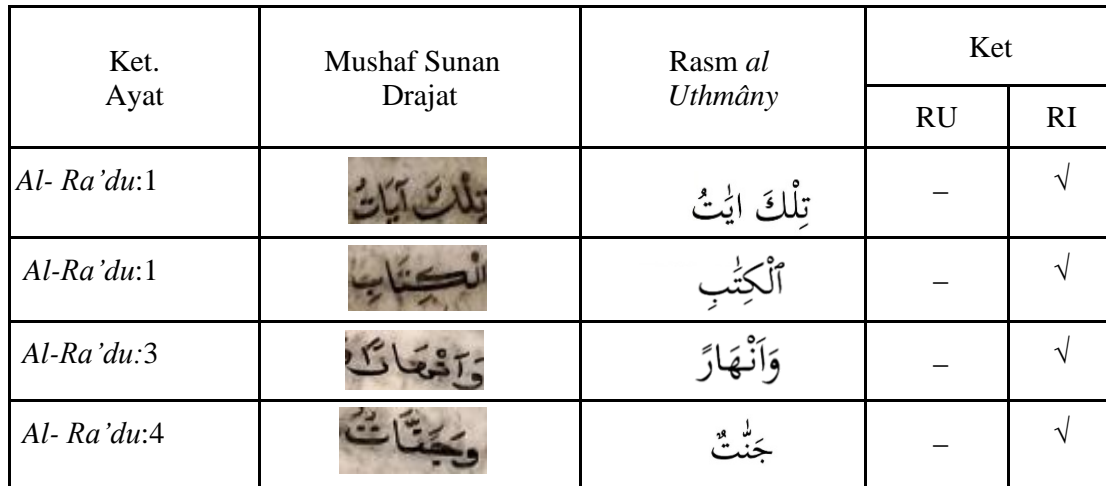 Ket. Ayat Mushaf Sunan Drajat Rasm al Uthmâny Ket
RU RI
Al- Ra’du:1 تِلْكَ آيَاتُ تِلْكَ ايٰتُ – √
Al-Ra’du:1 الْكِتَابِ ٱلْكِتٰبِ – √
Al-Ra’du:3 وَاَنْهَارًا وَاَنْهَارً – √
Al- Ra’du:4 وَجَنَّاتٌ جَنّٰتٌ – √